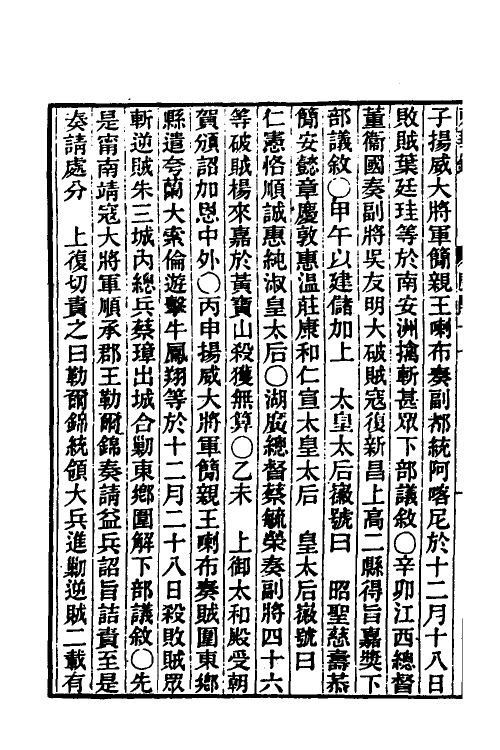 子揚威大將軍簡親王喇布奏副都統阿喀尼於十二月十八日
敗賊葉廷珪等於南安洲擒斬甚眾下部議敘〇辛卯江西總督
董衞國奏副將吳友明大破賊寇復新昌上高二縣得旨嘉獎下
部議敘〇甲午以建儲加上　太皇太后徽號曰　昭聖慈壽恭
簡安懿章慶敦惠温莊康和仁宣太皇太后　皇太后徽號曰
仁憲恪順誠惠純淑皇太后〇湖廣總督蔡毓榮奏副將四十六
等破賊楊來嘉於黃寶山殺獲無算〇乙未　上御太和殿受朝
賀頒詔加恩中外〇丙申揚威大將軍簡親王喇布奏賊圍東鄉
縣遣夸蘭大索倫遊擊牛鳳翔等於十二月二十八日殺敗賊眾
斬逆賊朱三城內總兵蔡璋出城合勦東鄉圍解下部議敘〇先
是甯南靖寇大將軍順承郡王勒爾錦奏請益兵詔旨詰責至是
奏請處分　上復切責之曰勒爾錦統領大兵進勦逆賊二載有